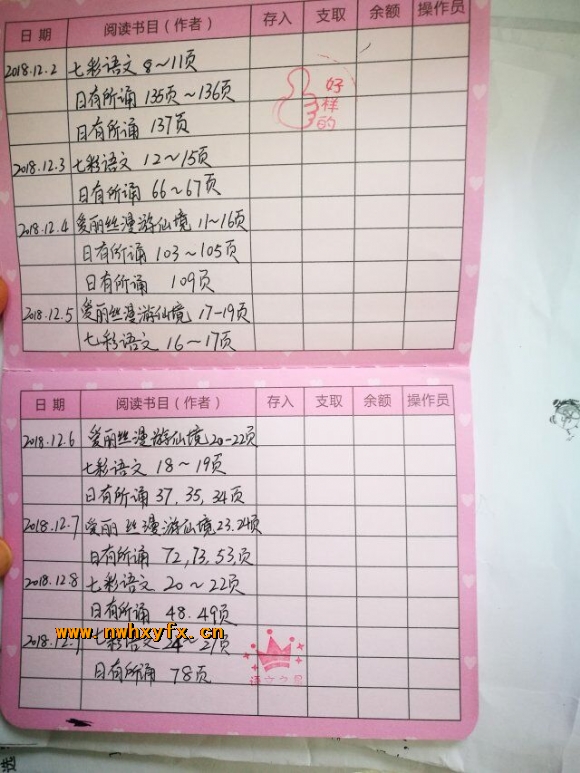 日期 阅读书目(作者) 存入 支取 余额 操作员
2018.12.2 七彩语文 8~11页
日有所诵 135页~136页
日有所诵 137页
好样的
2018.12.3 七彩语文 12~15页
日有所诵 66~67页
2018.12.4 爱丽丝漫游仙境 11~16页
日有所诵 103~105页
日有所诵 109页
2018.12.5 爱丽丝漫游仙境 17-19页
七彩语文 16~17页
日期 阅读书目(作者) 存入 支取 余额 操作员
2018.12.6 爱丽丝漫游仙境20-22页
七彩语文 18~19页
日有所诵 37,35,34页
2018.12.7 爱丽丝漫游仙境23.24页
日有所诵 72,73,53,页
2018.12.8 七彩语文 20~22页
日有所诵 48.49页
www.nwhxyfx.cn
七彩语文 24~27页
语文之星
日有所诵 78页
选